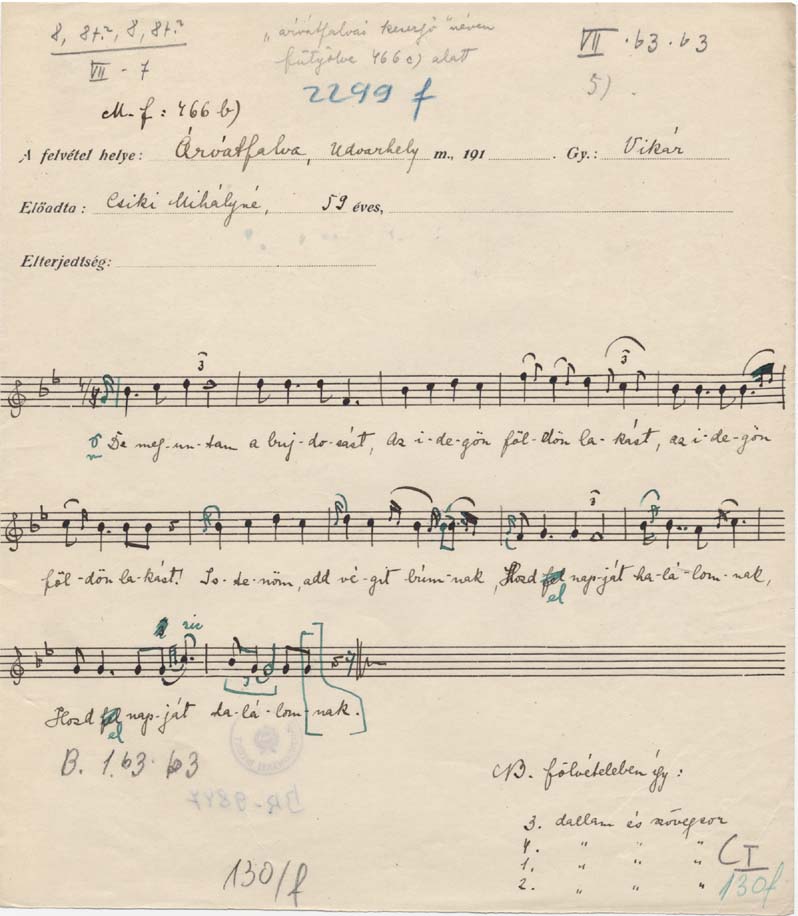 8, 8+?, 8, 8+?
VII - 7
„árvátfalvai kesergő" néven
fütyölve 466 c) alatt
VII . b3 . b3
5) .
2299 f
M. f : 466 b)
A felvétel helye: Árvátfalva, Udvarhely m., 191 . Gy.: Vikár
Előadta: Csiki Mihályné, 59 éves,
Elterjedtség:
3
3
De meg-un-tam a buj-do-sást, Az i-de-gön föl-dön la-kást, az i-de-gön
3
föl-dön la-kást! Is-te-nöm, add vé-git búm-nak, Hozd fel nap-ját ha-lá-lom-nak,
el
sic
3
Hozd fel nap-ját ha-lá-lom-nak.
el
B. 1. b3. b3
NB. fölvételeben így:
BR-9847
3. dallam és szövegsor
4. „ „ „
1. „ „ „
2. „ „ „
C I
130/f
130f